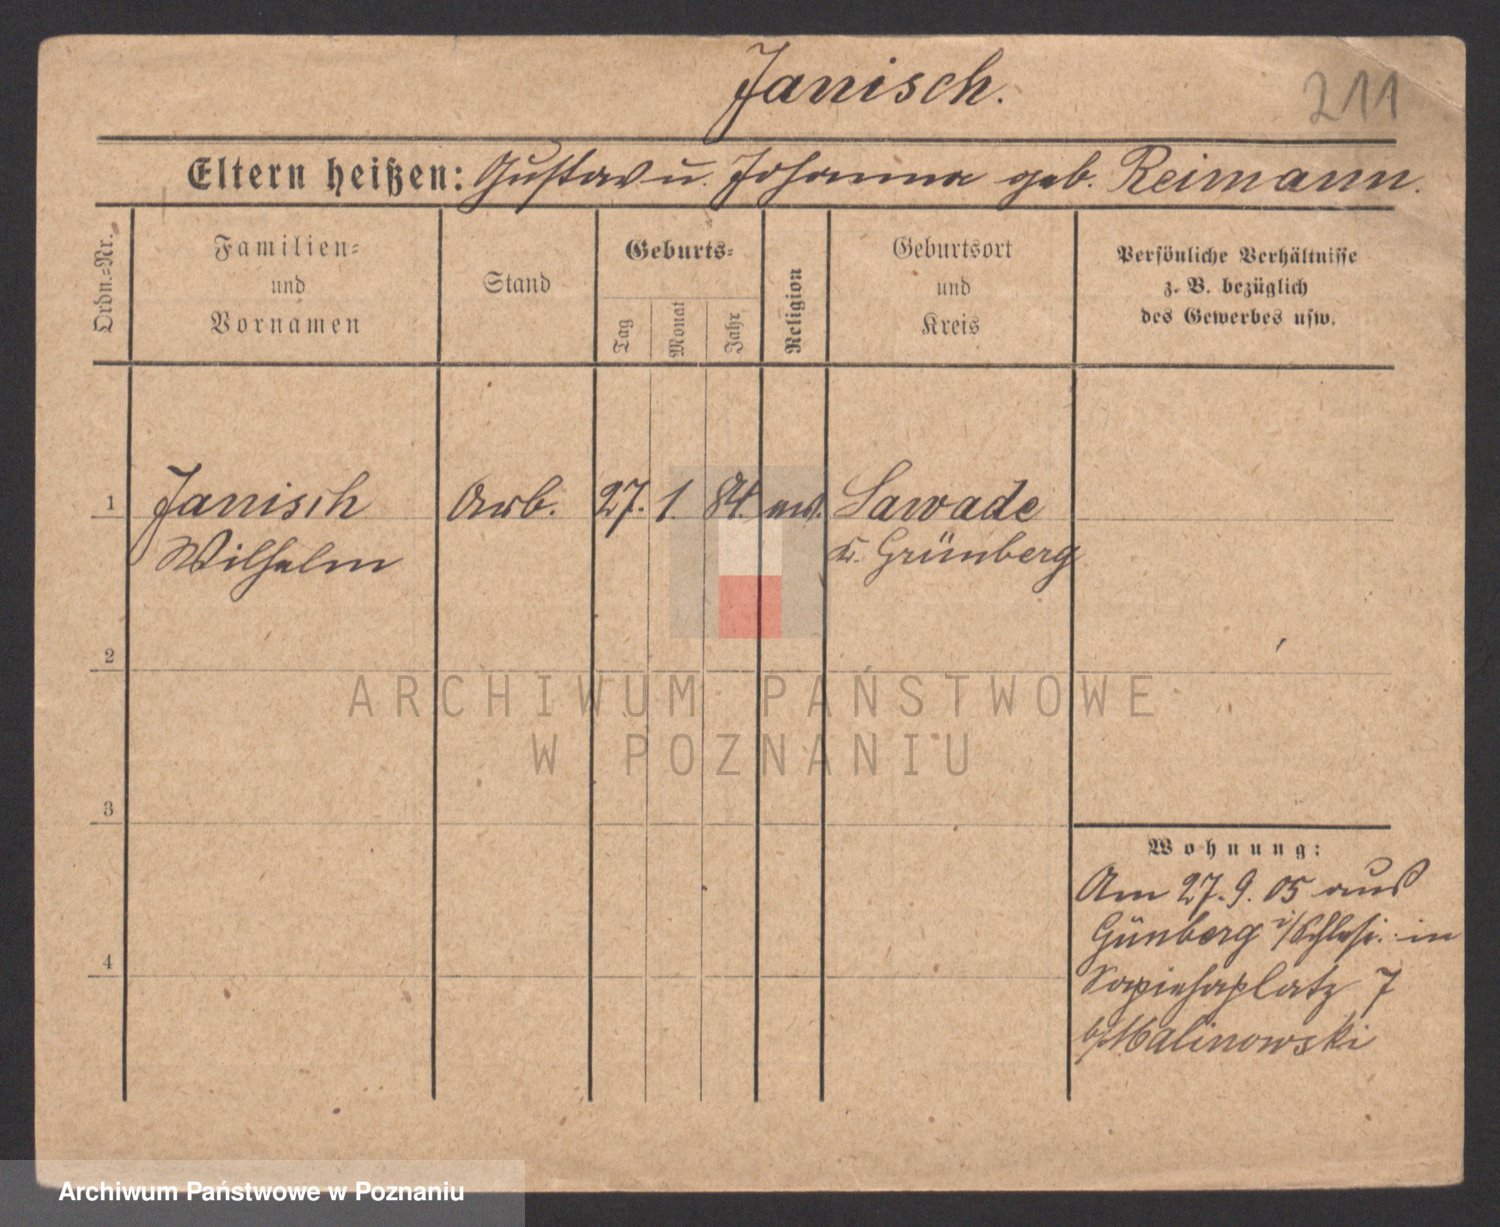 Janisch.
211
Eltern heißen: Gustav u. Johanna geb. Reimann.
Ordn.-Nr.
Familien-
und
Vornamen
Stand
Geburts-
Tag
Monat
Jahr
Religion
Geburtsort
und
Kreis
Persönliche Verhältnisse
z. B. bezüglich
des Gewerbes usw.
1 Janisch Arb. 27. 1. 84. ev. Sawade
Wilhelm K. Grünberg
2
3
4
Wohnung:
Am 27. 9. 05 aus
Günberg i/Schlesi. in
Sapiehaplatz 7
b/Malinowski
ARCHIWUM PAŃSTWOWE
W POZNANIU
Archiwum Państwowe w Poznaniu